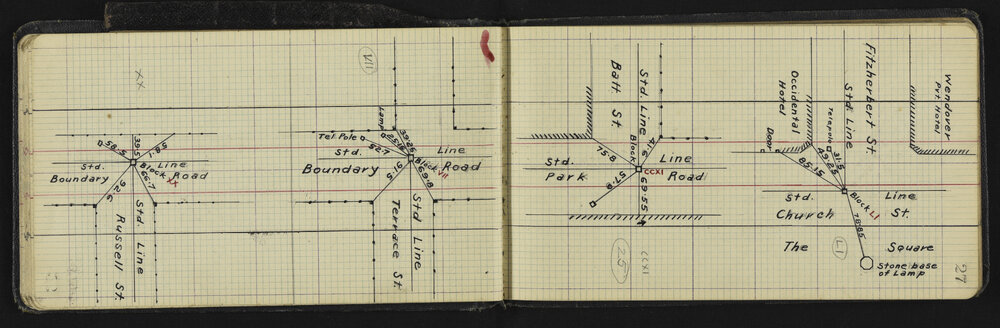 XX
58.5
39.5
58.1
Std. Line
Boundary Road
Block XX
66.7
92.6
Std. Line
Russell St.
VII
Lamp
Tel. Pole
25.18
39.25
52.7
Std. Line
Boundary Road
Block VII
91.5
69.8
Std. Line
Terrace St.
Batt St.
Std. Line
75.8
Block
41.6
Std. Line
Park Road
CCXI
57.9
69.55
25
CCXI
Wendover
Pvt. Hotel
Fitzherbert St
Std. Line
Occidental
Hotel
Telepole
Door
31.5
49.25
85.15
Std. Line
Church St.
Block LI
78.85
The Square
LI
Stone base
of Lamp
27